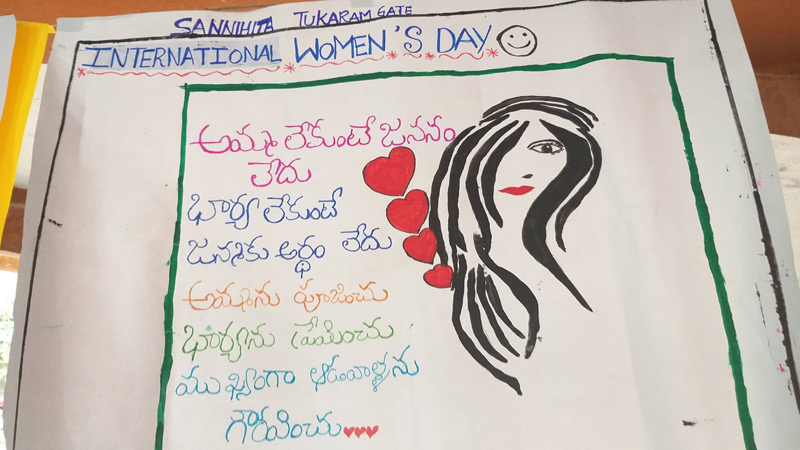 SANNIHITA TUKARAM GATE
INTERNATIONAL WOMEN'S DAY
అమ్మ లేకుంటే జననం
లేదు
భార్య లేకుంటే
జన్మకు అర్థం లేదు
అమ్మను పూజించు
భార్యను ప్రేమించు
ముఖ్యంగా ఆడవాళ్ళను
గౌరవించు